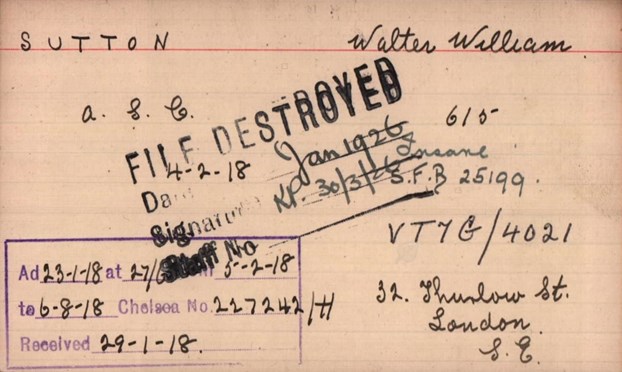 SUTTON Walter William
A. S. C. 615
FILE DESTROYED
4-2-18 Jan 1926 Insane
Date KP. 30/3/26 S.F.B 25199.
Signature
Staff No
VT7G/4021
Ad 23-1-18 at 27/ 5-2-18
to 6-8-18 Chelsea No. 227242/H
Received 29-1-18.
32. Thurlow St.
London.
S.E.